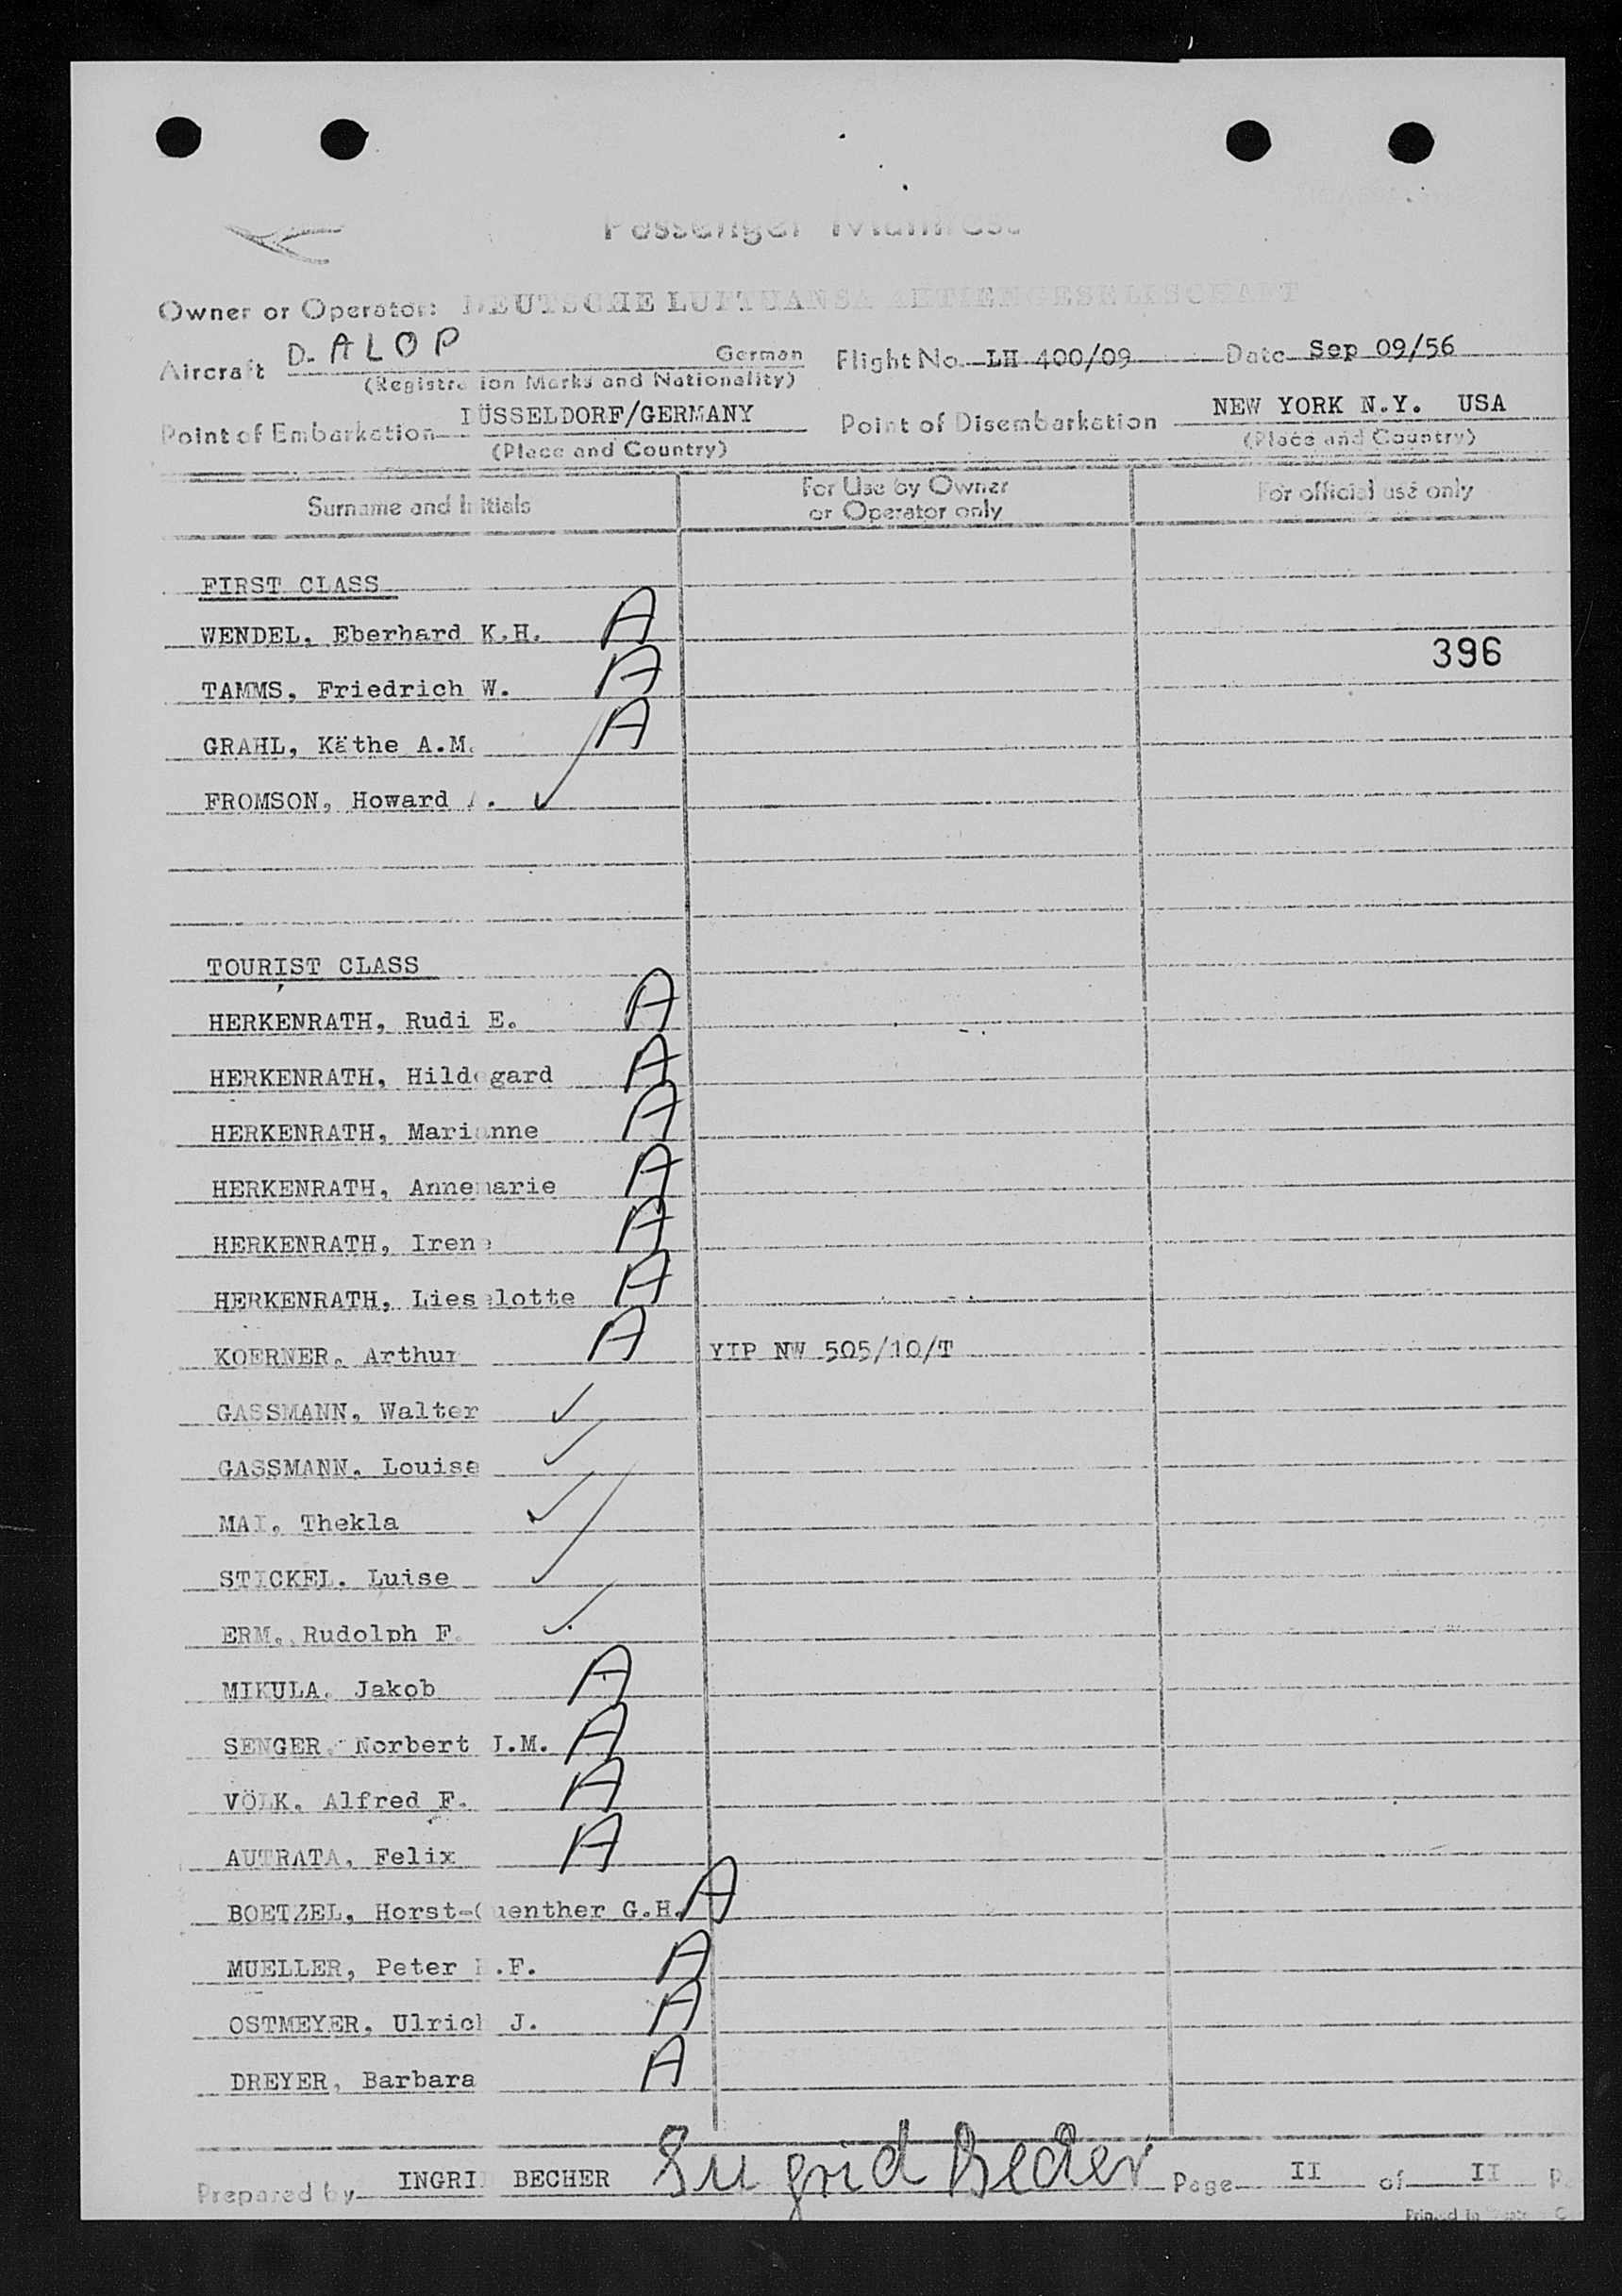 Passenger Manifest
Owner or Operator: DEUTSCHE LUFTHANSA AKTIENGESELLSCHAFT
Aircraft D-ALOP German Flight No. LH 400/09 Date Sep 09/56
(Registration Marks and Nationality)
Point of Embarkation DÜSSELDORF/GERMANY Point of Disembarkation NEW YORK N.Y. USA
(Place and Country) (Place and Country)
Surname and Initials For Use by Owner or Operator only For official use only
FIRST CLASS
WENDEL, Eberhard K.H. A
396
TAMMS, Friedrich W. A
GRAHL, Käthe A.M. A
FROMSON, Howard A. ✓
TOURIST CLASS
HERKENRATH, Rudi E. A
HERKENRATH, Hildegard A
HERKENRATH, Marianne A
HERKENRATH, Annemarie A
HERKENRATH, Irene A
HERKENRATH, Lieselotte A
KOERNER, Arthur A YIP NW 505/10/T
GASSMANN, Walter ✓
GASSMANN, Louise ✓
MAI, Thekla ✓
STICKEL, Luise ✓
ERM, Rudolph F. ✓
MIKULA, Jakob A
SENGER, Norbert J.M. A
VÖLK, Alfred F. A
AUTRATA, Felix A
BOETZEL, Horst-Guenther G.H. A
MUELLER, Peter .F. A
OSTMEYER, Ulrich J. A
DREYER, Barbara A
Prepared by INGRID BECHER Ingrid Becher Page II of II
Printed in